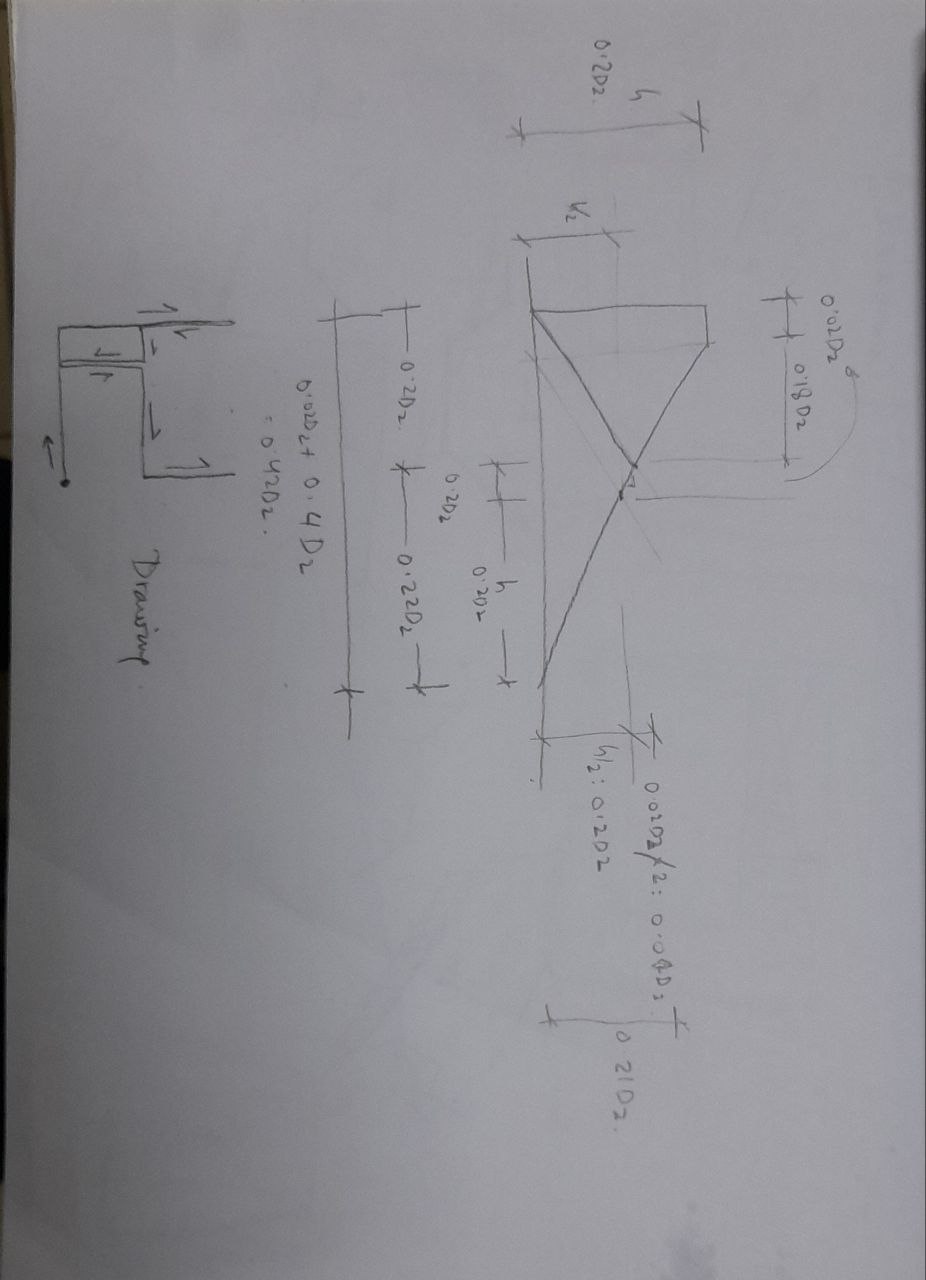 0.02D2
0.18D2
h
0.2D2.
h/2
0.02D2/2: 0.04D2
h/2: 0.2D2
0.21D2.
h
0.2D2
0.2D2
0.2D2.
0.22D2
0.02D2+ 0.4D2
= 0.42D2.
Drawing